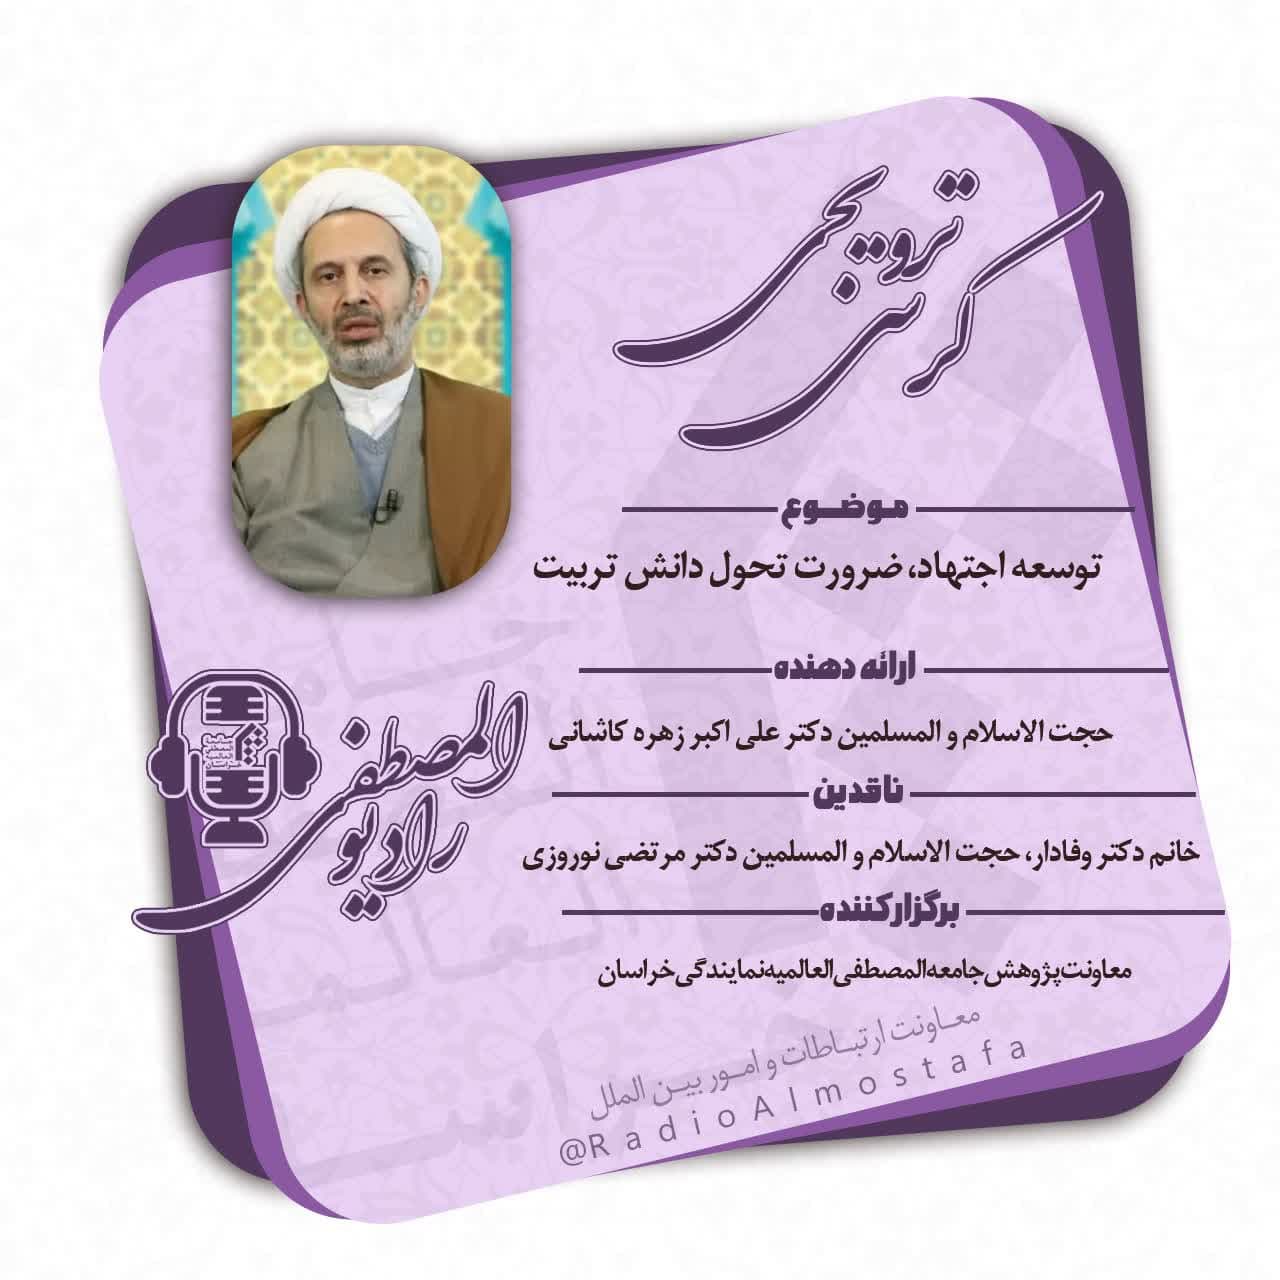 کرسی ترویجی
موضوع
توسعه اجتهاد، ضرورت تحول دانش تربیت
ارائه دهنده
حجت الاسلام و المسلمین دکتر علی اکبر زهره کاشانی
ناقدین
خانم دکتر وفادار، حجت الاسلام و المسلمین دکتر مرتضی نوروزی
برگزارکننده
معاونت پژوهش جامعه المصطفی العالمیه نمایندگی خراسان
رادیو المصطفی
معاونت ارتباطات و امور بین الملل
@RadioAlmostafa